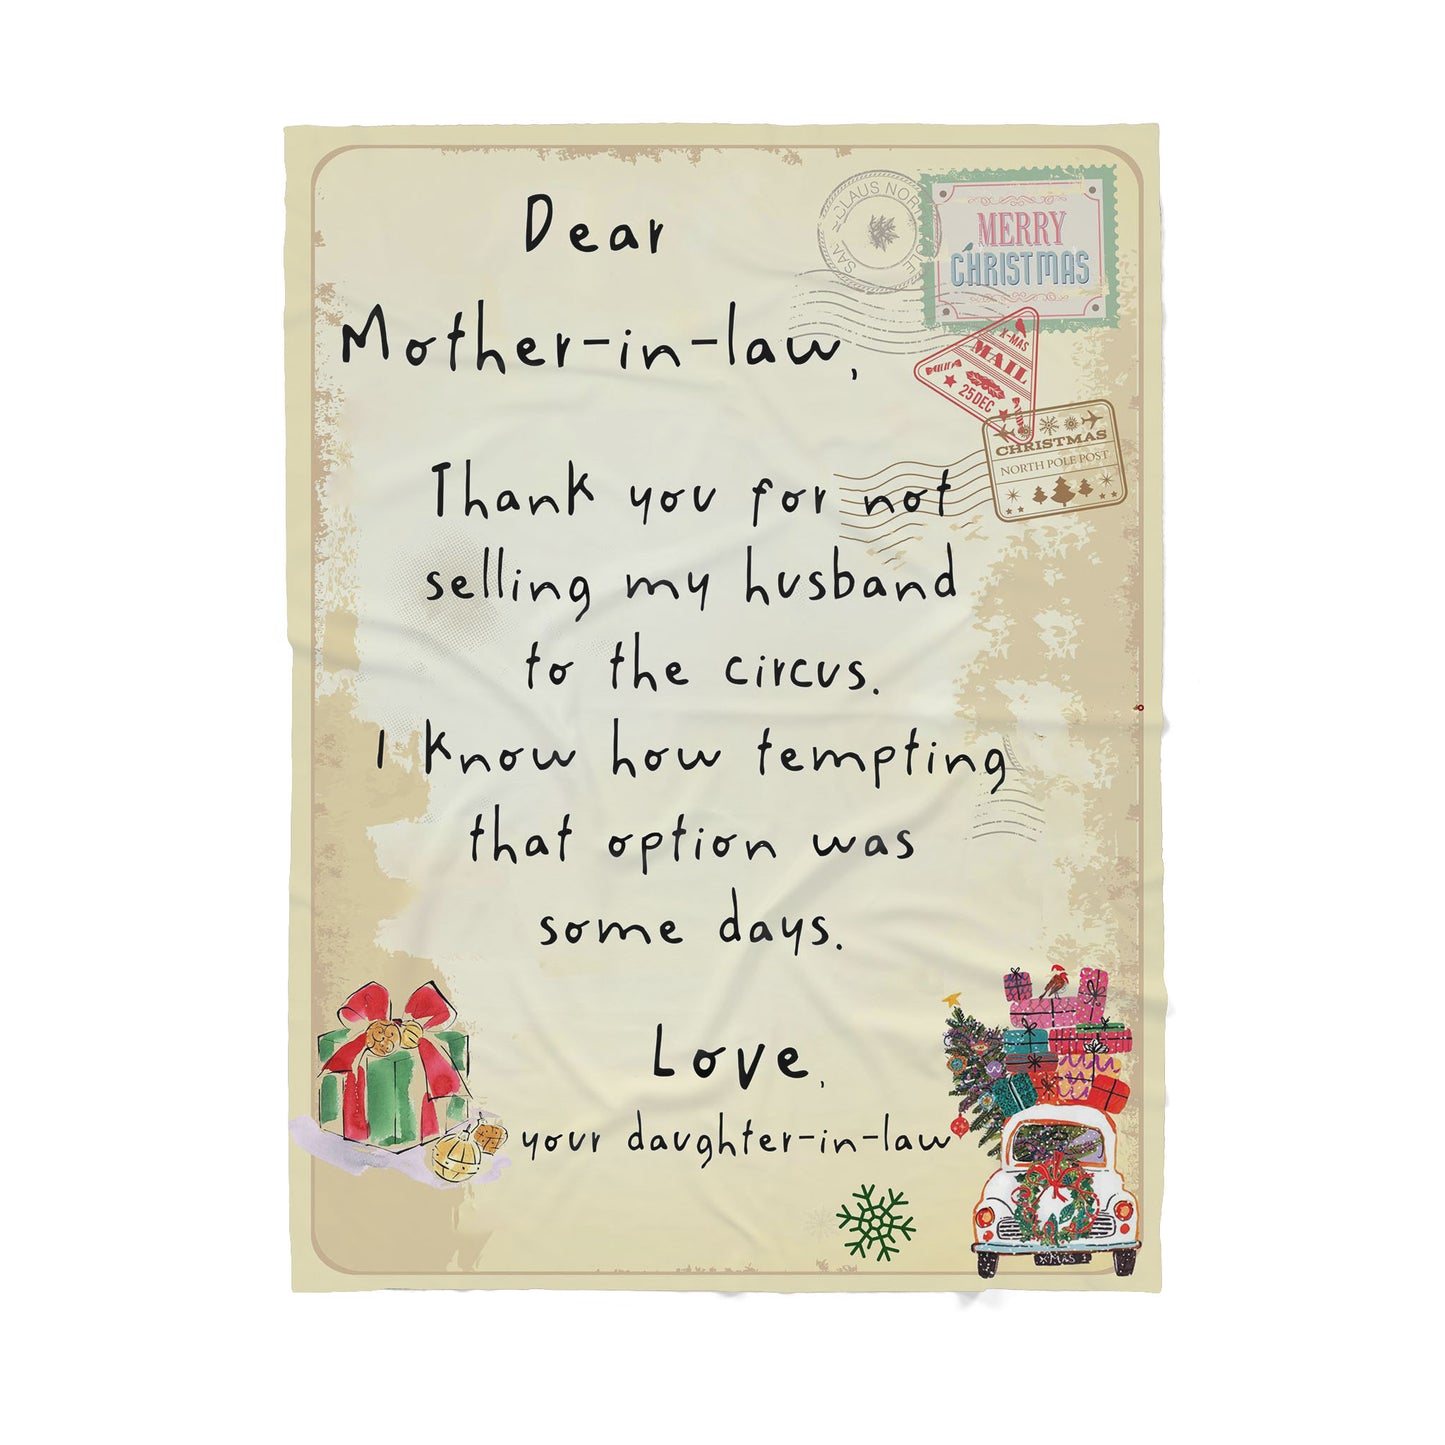 Dear
Mother-in-law,
Thank you for not
selling my husband
to the circus.
I know how tempting
that option was
some days.
Love,
your daughter-in-law
MERRY
CHRISTMAS
X-MAS
MAIL
25 DEC
CHRISTMAS
NORTH POLE POST
XMAS